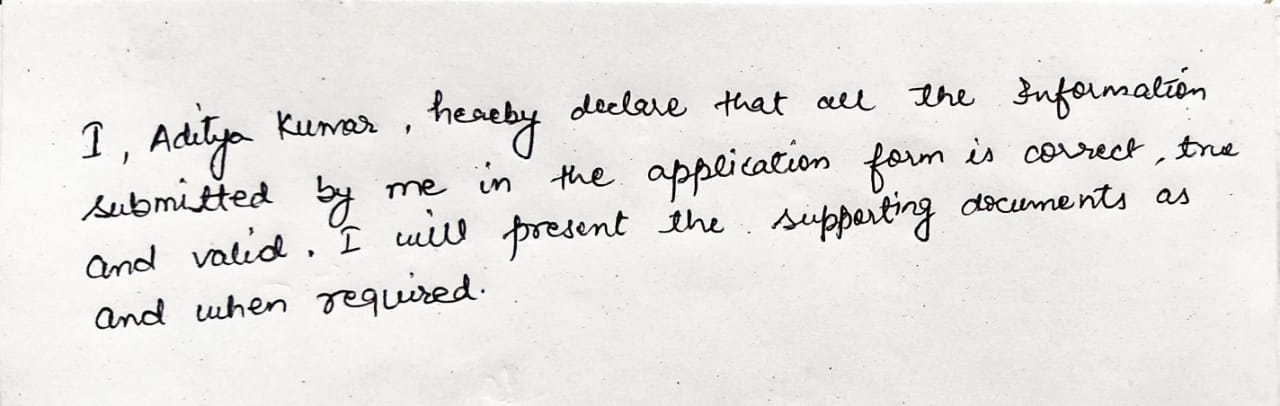 I, Aditya Kumar, hereby declare that all the Information
submitted by me in the application form is correct, true
and valid. I will present the supporting documents as
and when required.